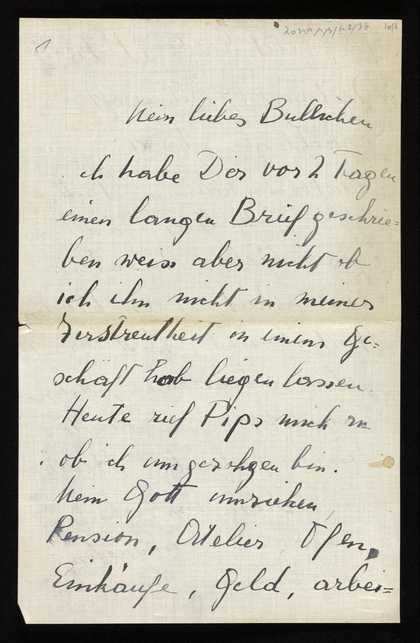 1
Mein liebes Bullichen
ich habe Dir vor 2 Tagen
einen langen Brief geschrie=
ben weiss aber nicht ob
ich ihn nicht in meiner
Zerstreutheit in einem Ge=
schäft hab liegen lassen.
Heute rief Pips mich an
ob ich umgezogen bin.
Mein Gott umziehen,
Pension, Atelier Ofen,
Einkäufe, Geld, arbei=